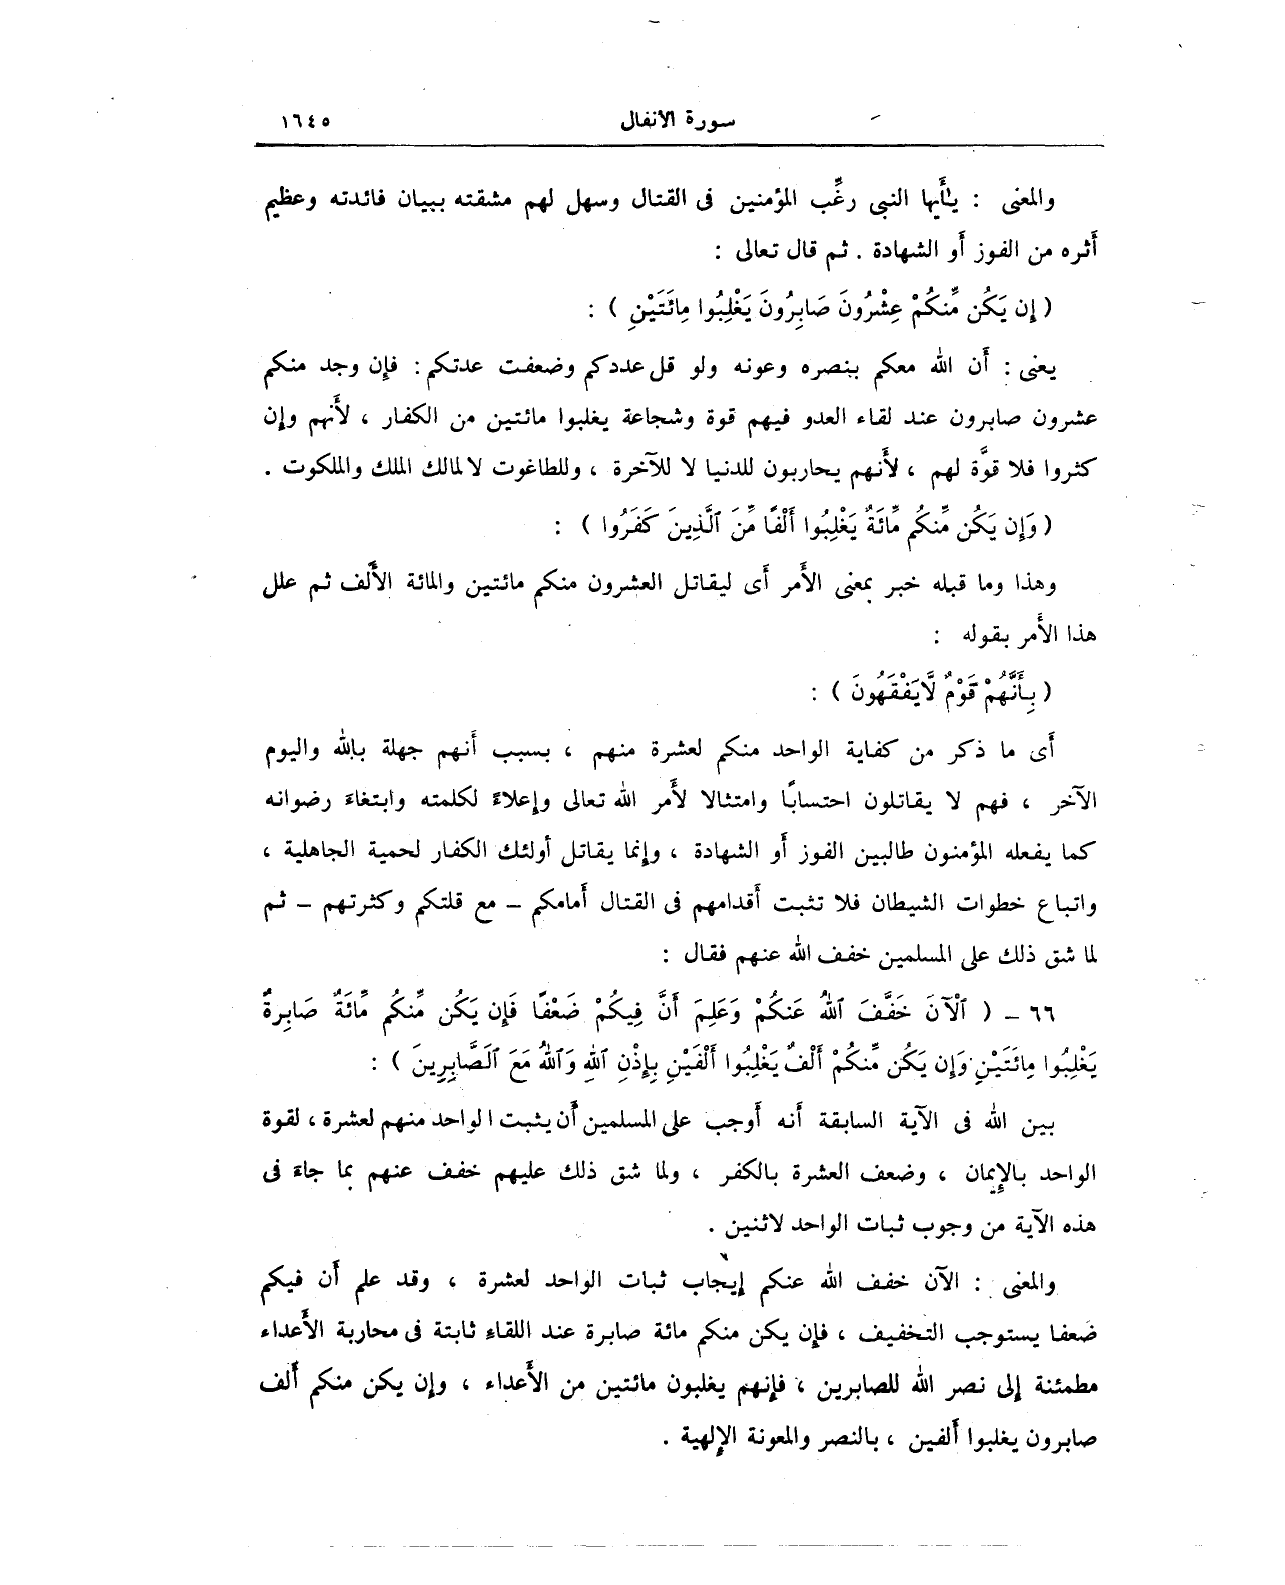 سورة الأنفال ١٦٤٥
والمعنى : يٰأَيها النبى رغِّب المؤمنين فى القتال وسهل لهم مشقته ببيان فائدته وعظيم
أَثره من الفوز أَو الشهادة . ثم قال تعالى :
( إِن يَكُن مِّنكُمْ عِشْرُونَ صَابِرُونَ يَغْلِبُوا مِائَتَيْنِ ) :
يعنى : أَن الله معكم بنصره وعونه ولو قل عددكم وضعفت عدتكم : فإِن وجد منكم
عشرون صابرون عند لقاء العدو فيهم قوة وشجاعة يغلبوا مائتين من الكفار ، لأَنهم وإن
كثروا فلا قوَّة لهم ، لأَنهم يحاربون للدنيا لا للآخرة ، وللطاغوت لا لمالك الملك والملكوت .
( وَإِن يَكُن مِّنكُم مِّائَةٌ يَغْلِبُوا أَلْفًا مِّنَ ٱلَّذِينَ كَفَرُوا ) :
وهذا وما قبله خبر بمعنى الأَمر أَى ليقاتل العشرون منكم مائتين والمائة الأَلف ثم علل
هذا الأَمر بقوله :
( بِأَنَّهُمْ قَوْمٌ لَّايَفْقَهُونَ ) :
أَى ما ذكر من كفاية الواحد منكم لعشرة منهم ، بسبب أَنهم جهلة بالله واليوم
الآخر ، فهم لا يقاتلون احتسابًا وامتثالا لأَمر الله تعالى وإعلاءً لكلمته وابتغاءَ رضوانه
كما يفعله المؤمنون طالبين الفوز أَو الشهادة ، وإنما يقاتل أولئك الكفار لحمية الجاهلية ،
واتباع خطوات الشيطان فلا تثبت أَقدامهم فى القتال أَمامكم – مع قلتكم وكثرتهم – ثم
لما شق ذلك على المسلمين خفف الله عنهم فقال :
٦٦ – ( ٱلْآنَ خَفَّفَ ٱللهُ عَنكُمْ وَعَلِمَ أَنَّ فِيكُمْ ضَعْفًا فَإِن يَكُن مِّنكُم مِّائَةٌ صَابِرَةٌ
يَغْلِبُوا مِائَتَيْنِ وَإِن يَكُن مِّنكُمْ أَلْفٌ يَغْلِبُوا أَلْفَيْنِ بِإِذْنِ ٱللهِ وَٱللهُ مَعَ ٱلصَّابِرِينَ ) :
بين الله فى الآية السابقة أَنه أَوجب على المسلمين أَن يثبت الواحد منهم لعشرة ، لقوة
الواحد بالإِيمان ، وضعف العشرة بالكفر ، ولما شق ذلك عليهم خفف عنهم بما جاءَ فى
هذه الآية من وجوب ثبات الواحد لاثنين .
والمعنى : الآن خفف الله عنكم إِيجاب ثبات الواحد لعشرة ، وقد علم أَن فيكم
ضعفا يستوجب التخفيف ، فإِن يكن منكم مائة صابرة عند اللقاءِ ثابتة فى محاربة الأَعداء
مطمئنة إلى نصر الله للصابرين ، فإِنهم يغلبون مائتين من الأَعداء ، وإن يكن منكم أَلف
صابرون يغلبوا أَلفين ، بالنصر والمعونة الإِلهية .